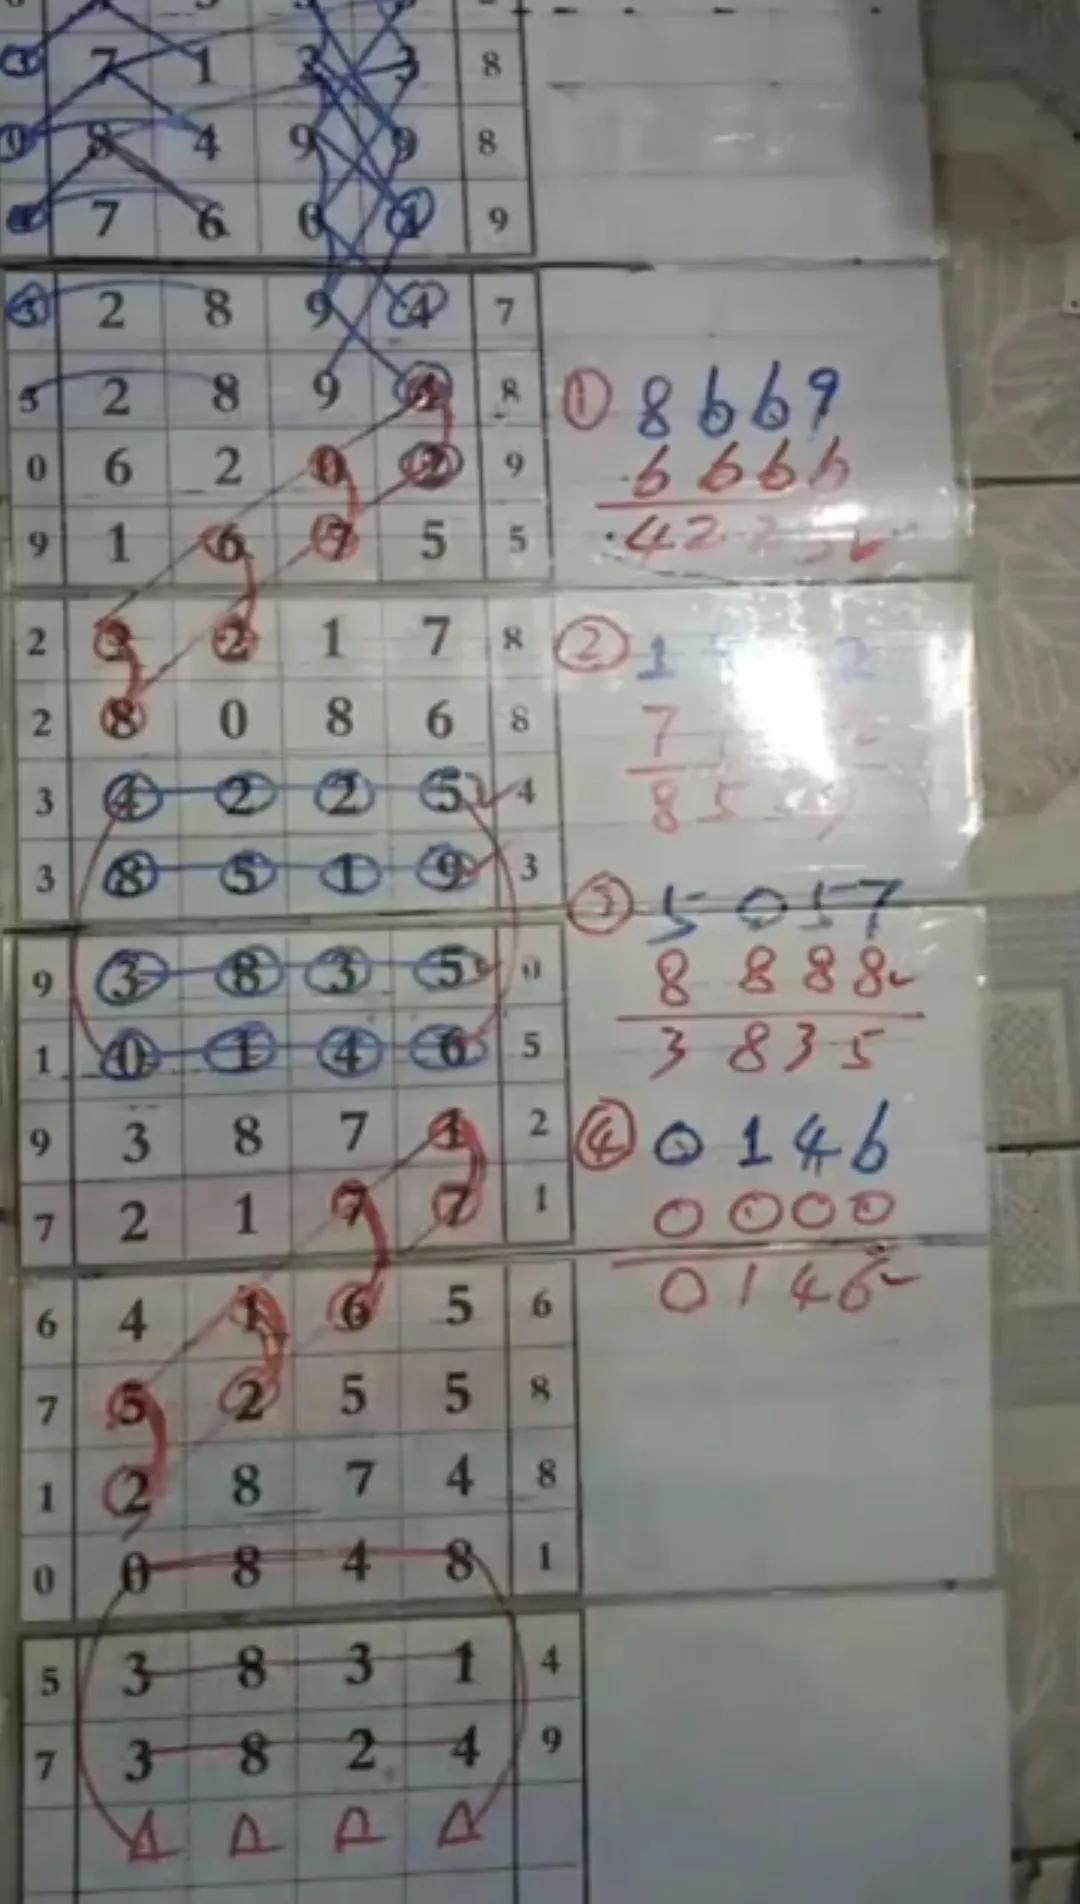 7 1 3 3 8
8 4 9 9 8
7 6 0 1 9
3 2 8 9 4 7
5 2 8 9 4 8
0 6 2 0 2 9
9 1 6 7 5 5
2 3 2 1 7 8
2 8 0 8 6 8
3 4 2 2 5 4
3 8 5 1 9 3
9 3 8 3 5 0
1 0 1 4 6 5
9 3 8 7 1 2
7 2 1 7 7 1
6 4 1 6 5 6
7 5 2 5 5 8
1 2 8 7 4 8
0 0 8 4 8 1
5 3 8 3 1 4
7 3 8 2 4 9
① 8669
6666
422
② 1 2
7
85 9
③ 5057
8888
3835
④ 0146
0000
0146